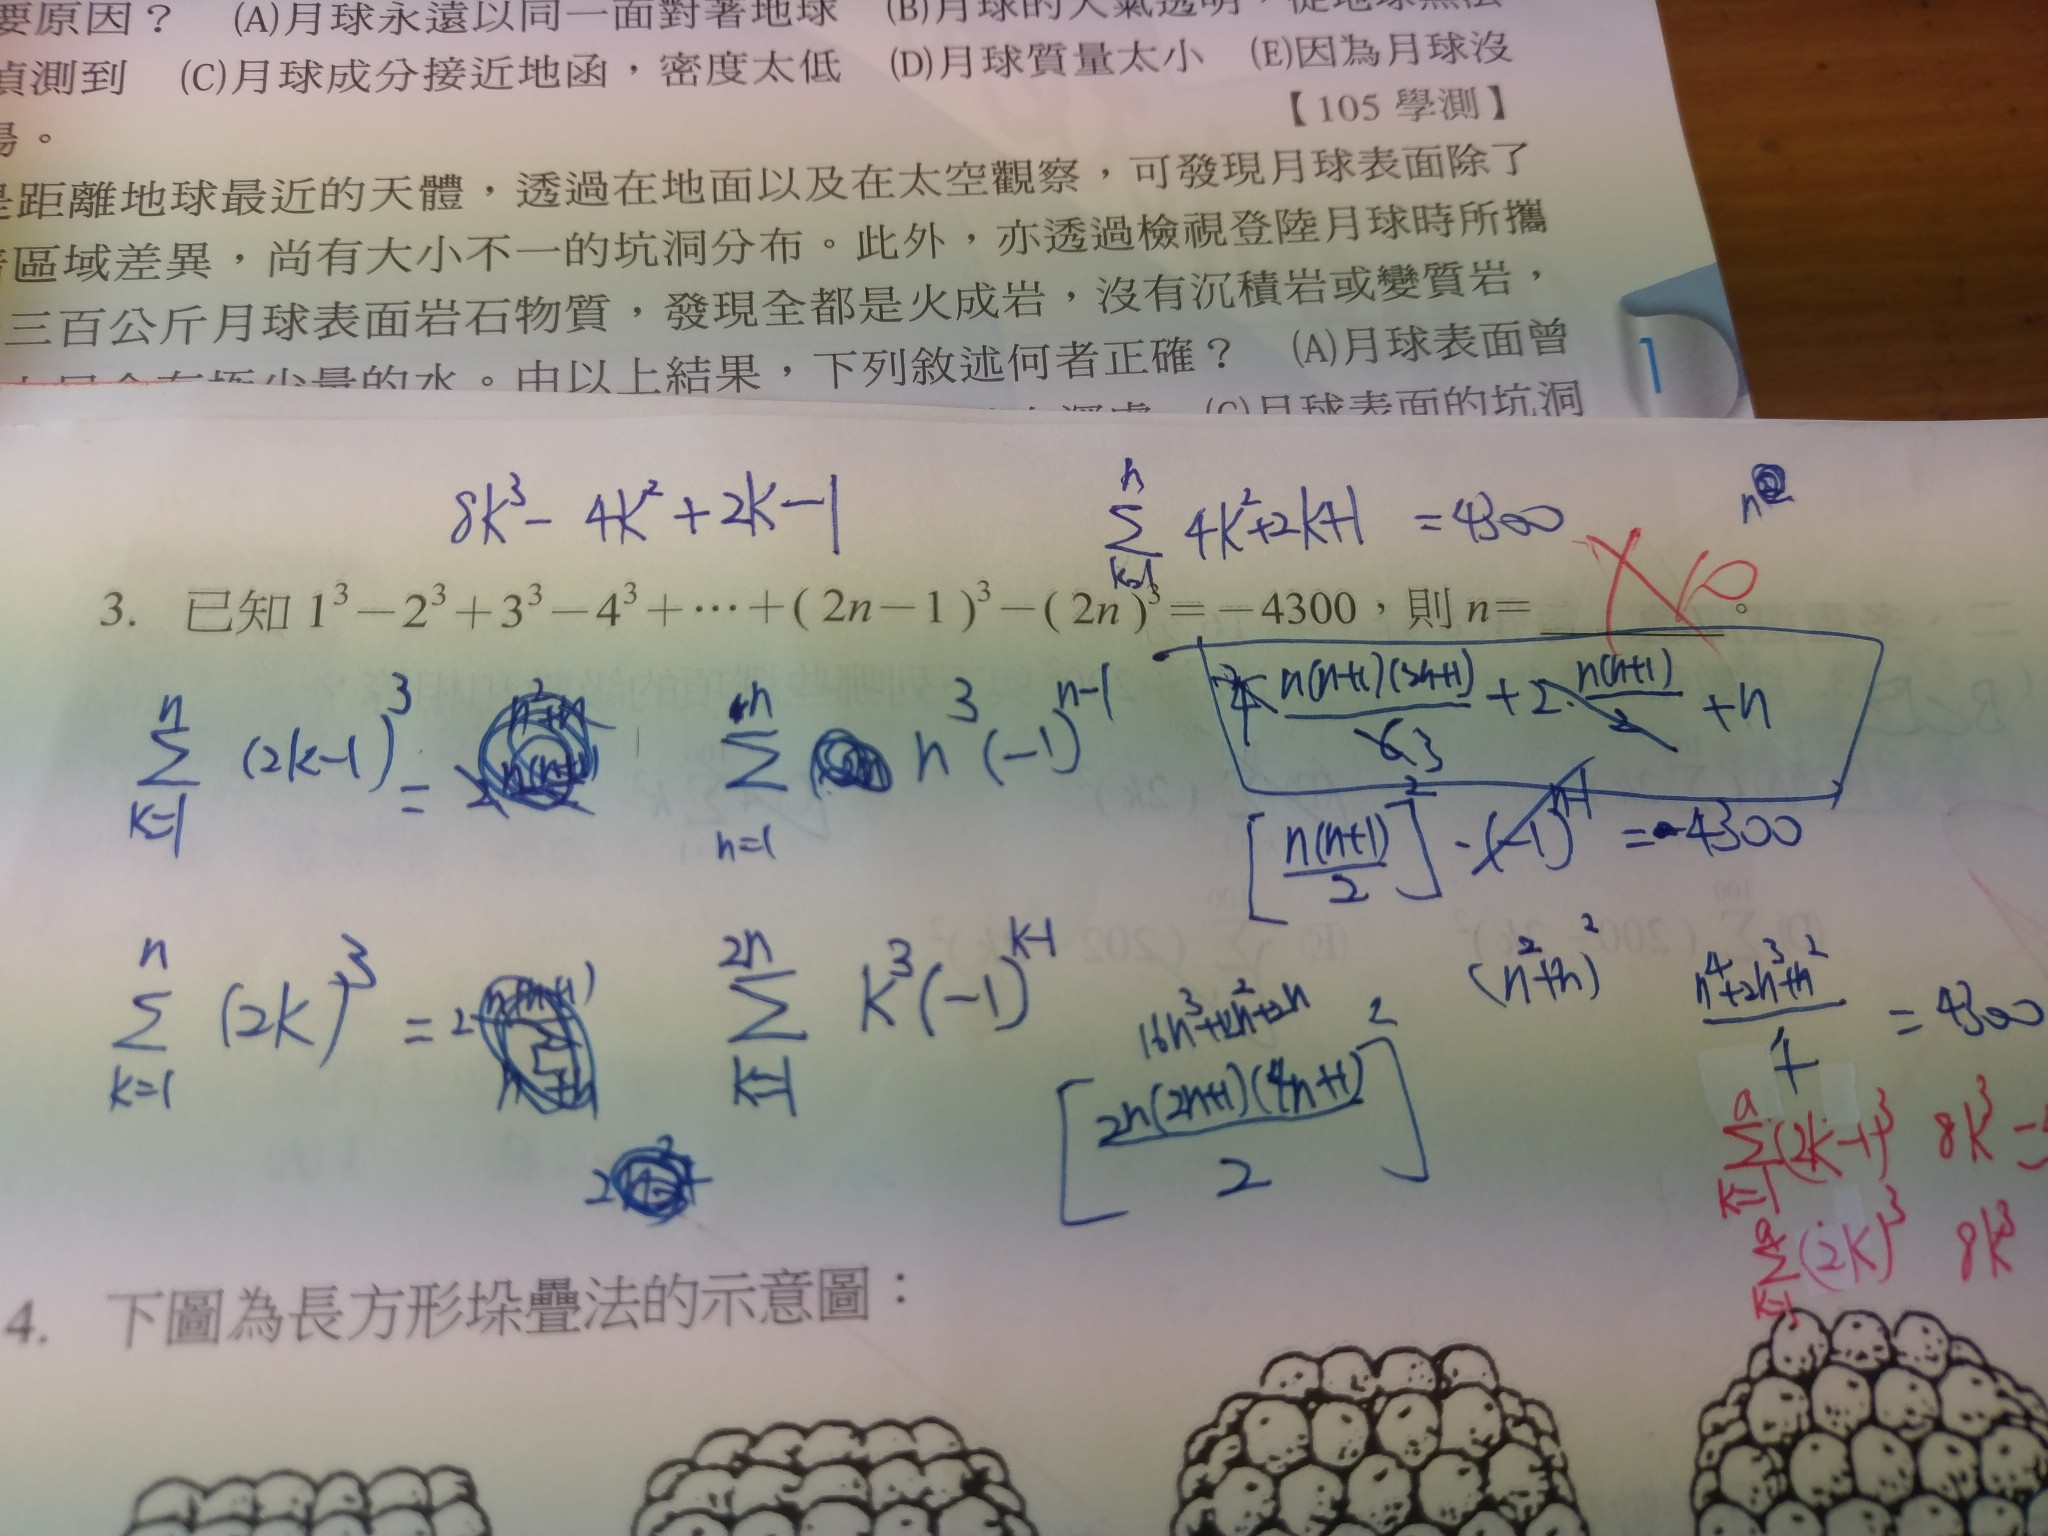 要原因？ (A)月球永遠以同一面對著地球 (B)月球的大氣透明，從地球無法
偵測到 (C)月球成分接近地函，密度太低 (D)月球質量太小 (E)因為月球沒
【105 學測】
場。
是距離地球最近的天體，透過在地面以及在太空觀察，可發現月球表面除了
區域差異，尚有大小不一的坑洞分布。此外，亦透過檢視登陸月球時所攜
三百公斤月球表面岩石物質，發現全都是火成岩，沒有沉積岩或變質岩，
極少量的水。由以上結果，下列敘述何者正確？ (A)月球表面曾
(C)月球表面的坑洞
1
8k³ - 4k² + 2k - 1
n Σ k=1 4k²+2k+1 = 4300
3. 已知 1³−2³+3³−4³+⋯+(2n−1)³−(2n)³=−4300，則 n=＿＿＿。
n Σ k=1 (2k-1)³ =
Σ n=1 n³(-1)^(n-1)
n(n+1)(2n+1) + 2· n(n+1)/2 + n
[n(n+1)/2]² · (-1)^(n-1) = -4300
n Σ k=1 (2k)³ =
2n Σ k=1 k³(-1)^(k-1)
16n³+12n²+2n
[2n(2n+1)(4n+1)/2]²
(n²+n)²
n⁴+2n³+n²/4 = 4300
a Σ k=1 (2k-1)³ 8k³
a Σ k=1 (2k)³ 8k³
4. 下圖為長方形垛疊法的示意圖：